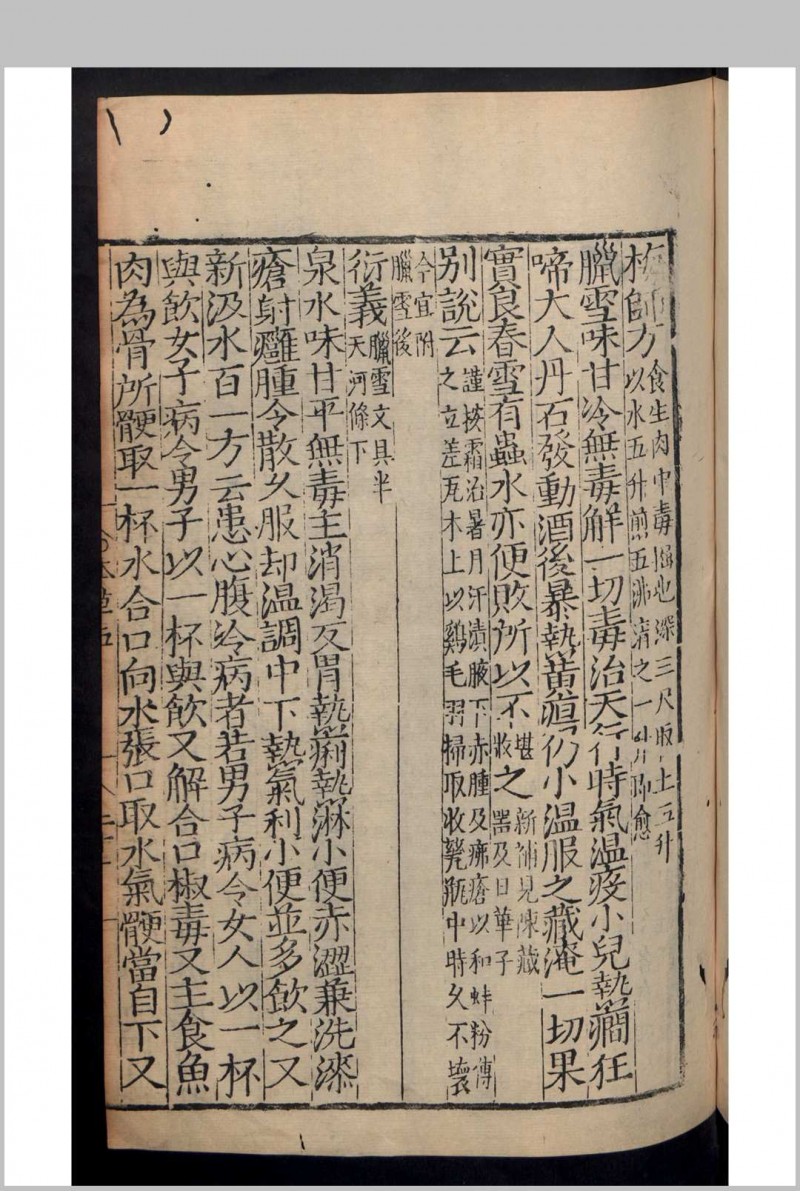 梅師方食生肉中毒掘地深三尺取土五升
以水五升煎五沸清之一升即愈
臘雪味甘冷無毒解一切毒治天行時氣温疫小兒熱癇狂
啼大人丹石發動酒後暴熱黃疸仍小温服之藏淹一切果
實良春雪有蟲水亦便敗所以不堪收之新補見陳藏器及日華子
別說云謹按霜治暑月汗漬腋下赤腫及痱瘡以和蚌粉傅
之立差瓦木上以鷄毛羽掃取收甆瓶中時久不壞
今宜附
臘雪後
衍義臘雪文具半
天河條下
泉水味甘平無毒主消渴反胃熱痢熱淋小便赤澀兼洗漆
瘡射癰腫令散久服却温調中下熱氣利小便並多飲之又
新汲水百一方云患心腹冷病者若男子病令女人以一杯
與飲女子病令男子以一杯與飲又解合口椒毒又主食魚
肉為骨所骾取一杯水合口向水張口取水氣骾當自下又